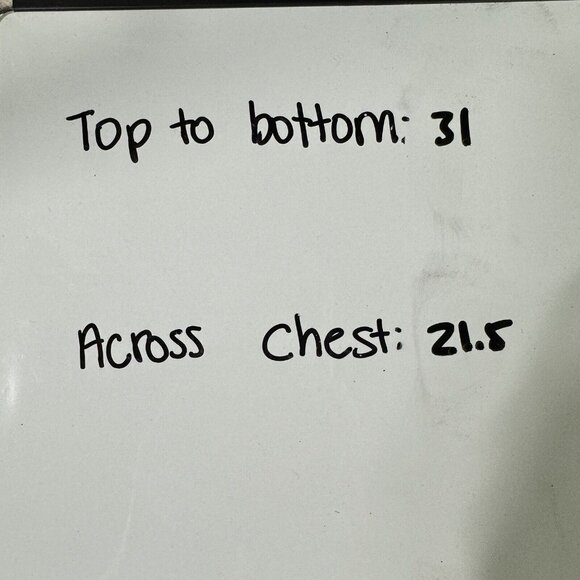 Top to bottom: 31
Across Chest: 21.5